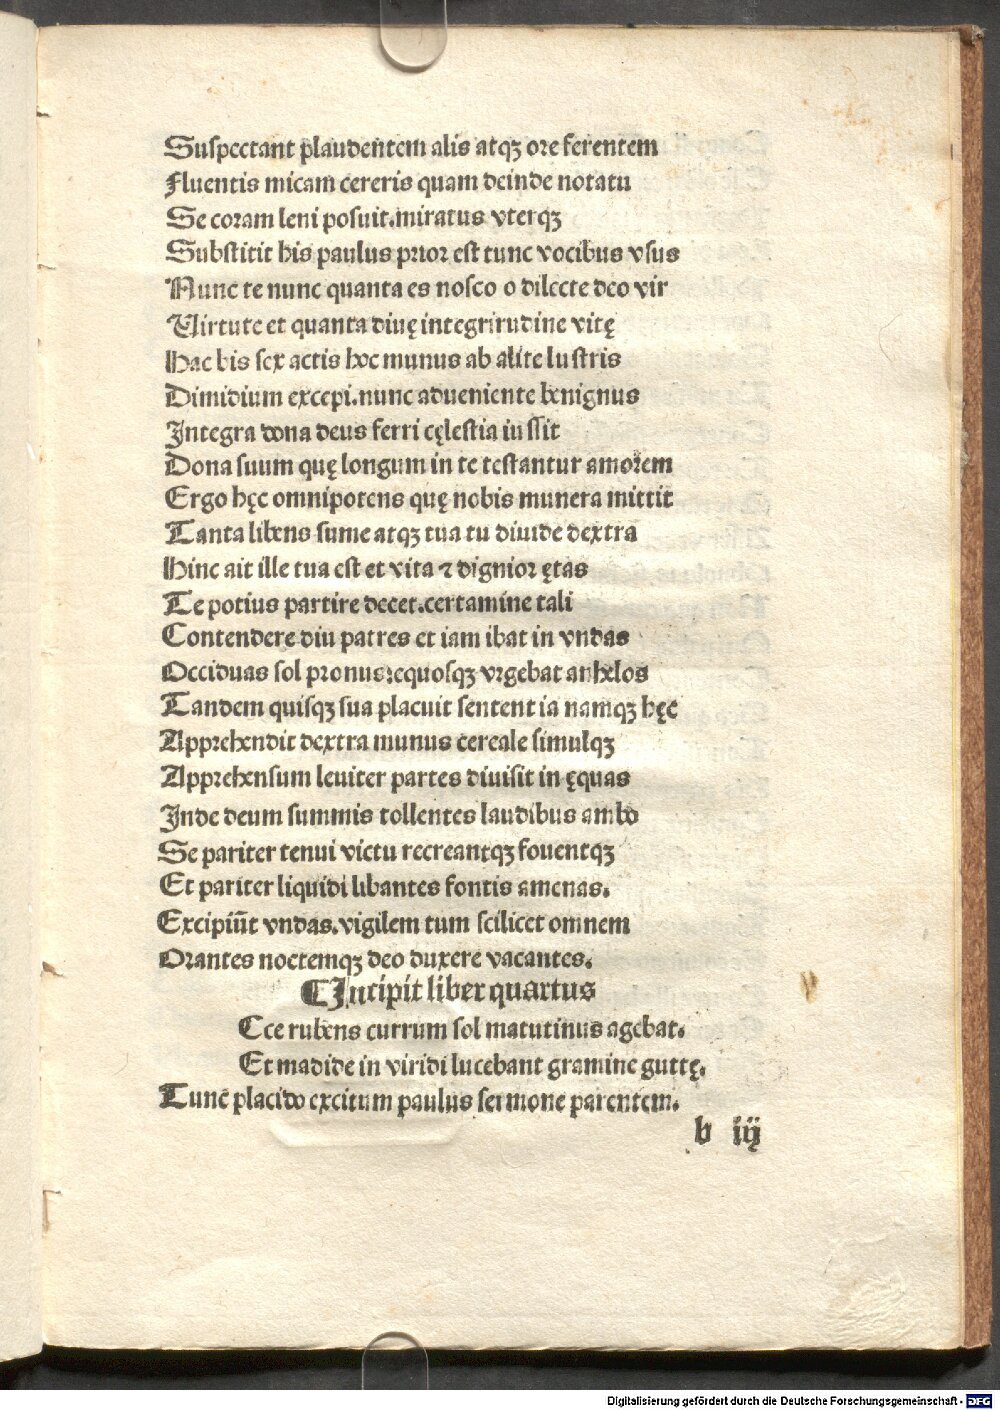 Suspectant plaudentem alis atqꝫ ore ferentem
Fluentis micam cereris quam deinde notatu
Se coram leni posuit.miratus vterqꝫ
Substitit his paulus prior est tunc vocibus vsus
Nunc te nunc quanta es nosco o dilecte deo vir
Virtute et quanta diuę integrirudine vitę
Hac bis sex actis hoc munus ab alite lustris
Dimidium excepi.nunc adueniente benignus
Integra dona deus ferri cęlestia iussit
Dona suum quę longum in te testantur amorem
Ergo hęc omnipotens quę nobis munera mittit
Tanta libens sume atqꝫ tua tu diuide dextra
Hinc ait ille tua est et vita ⁊ dignior ętas
Te potius partire decet.certamine tali
Contendere diu patres et iam ibat in vndas
Occiduas sol pronus:equosqꝫ vrgebat anhelos
Tandem quisqꝫ sua placuit sententia namqꝫ hęc
Apprehendit dextra munus cereale simulqꝫ
Apprehensum leuiter partes diuisit in ęquas
Inde deum summis tollentes laudibus ambo
Se pariter tenui victu recreantqꝫ fouentqꝫ
Et pariter liquidi libantes fontis amenas.
Excipiūt vndas.vigilem tum scilicet omnem
Orantes noctemqꝫ deo duxere vacantes.
¶Incipit liber quartus
Cce rubens currum sol matutinus agebat.
Et madide in viridi lucebant gramine guttę.
Tunc placido excitum paulus sermone parentem.
b iij
Digitalisierung gefördert durch die Deutsche Forschungsgemeinschaft - DFG